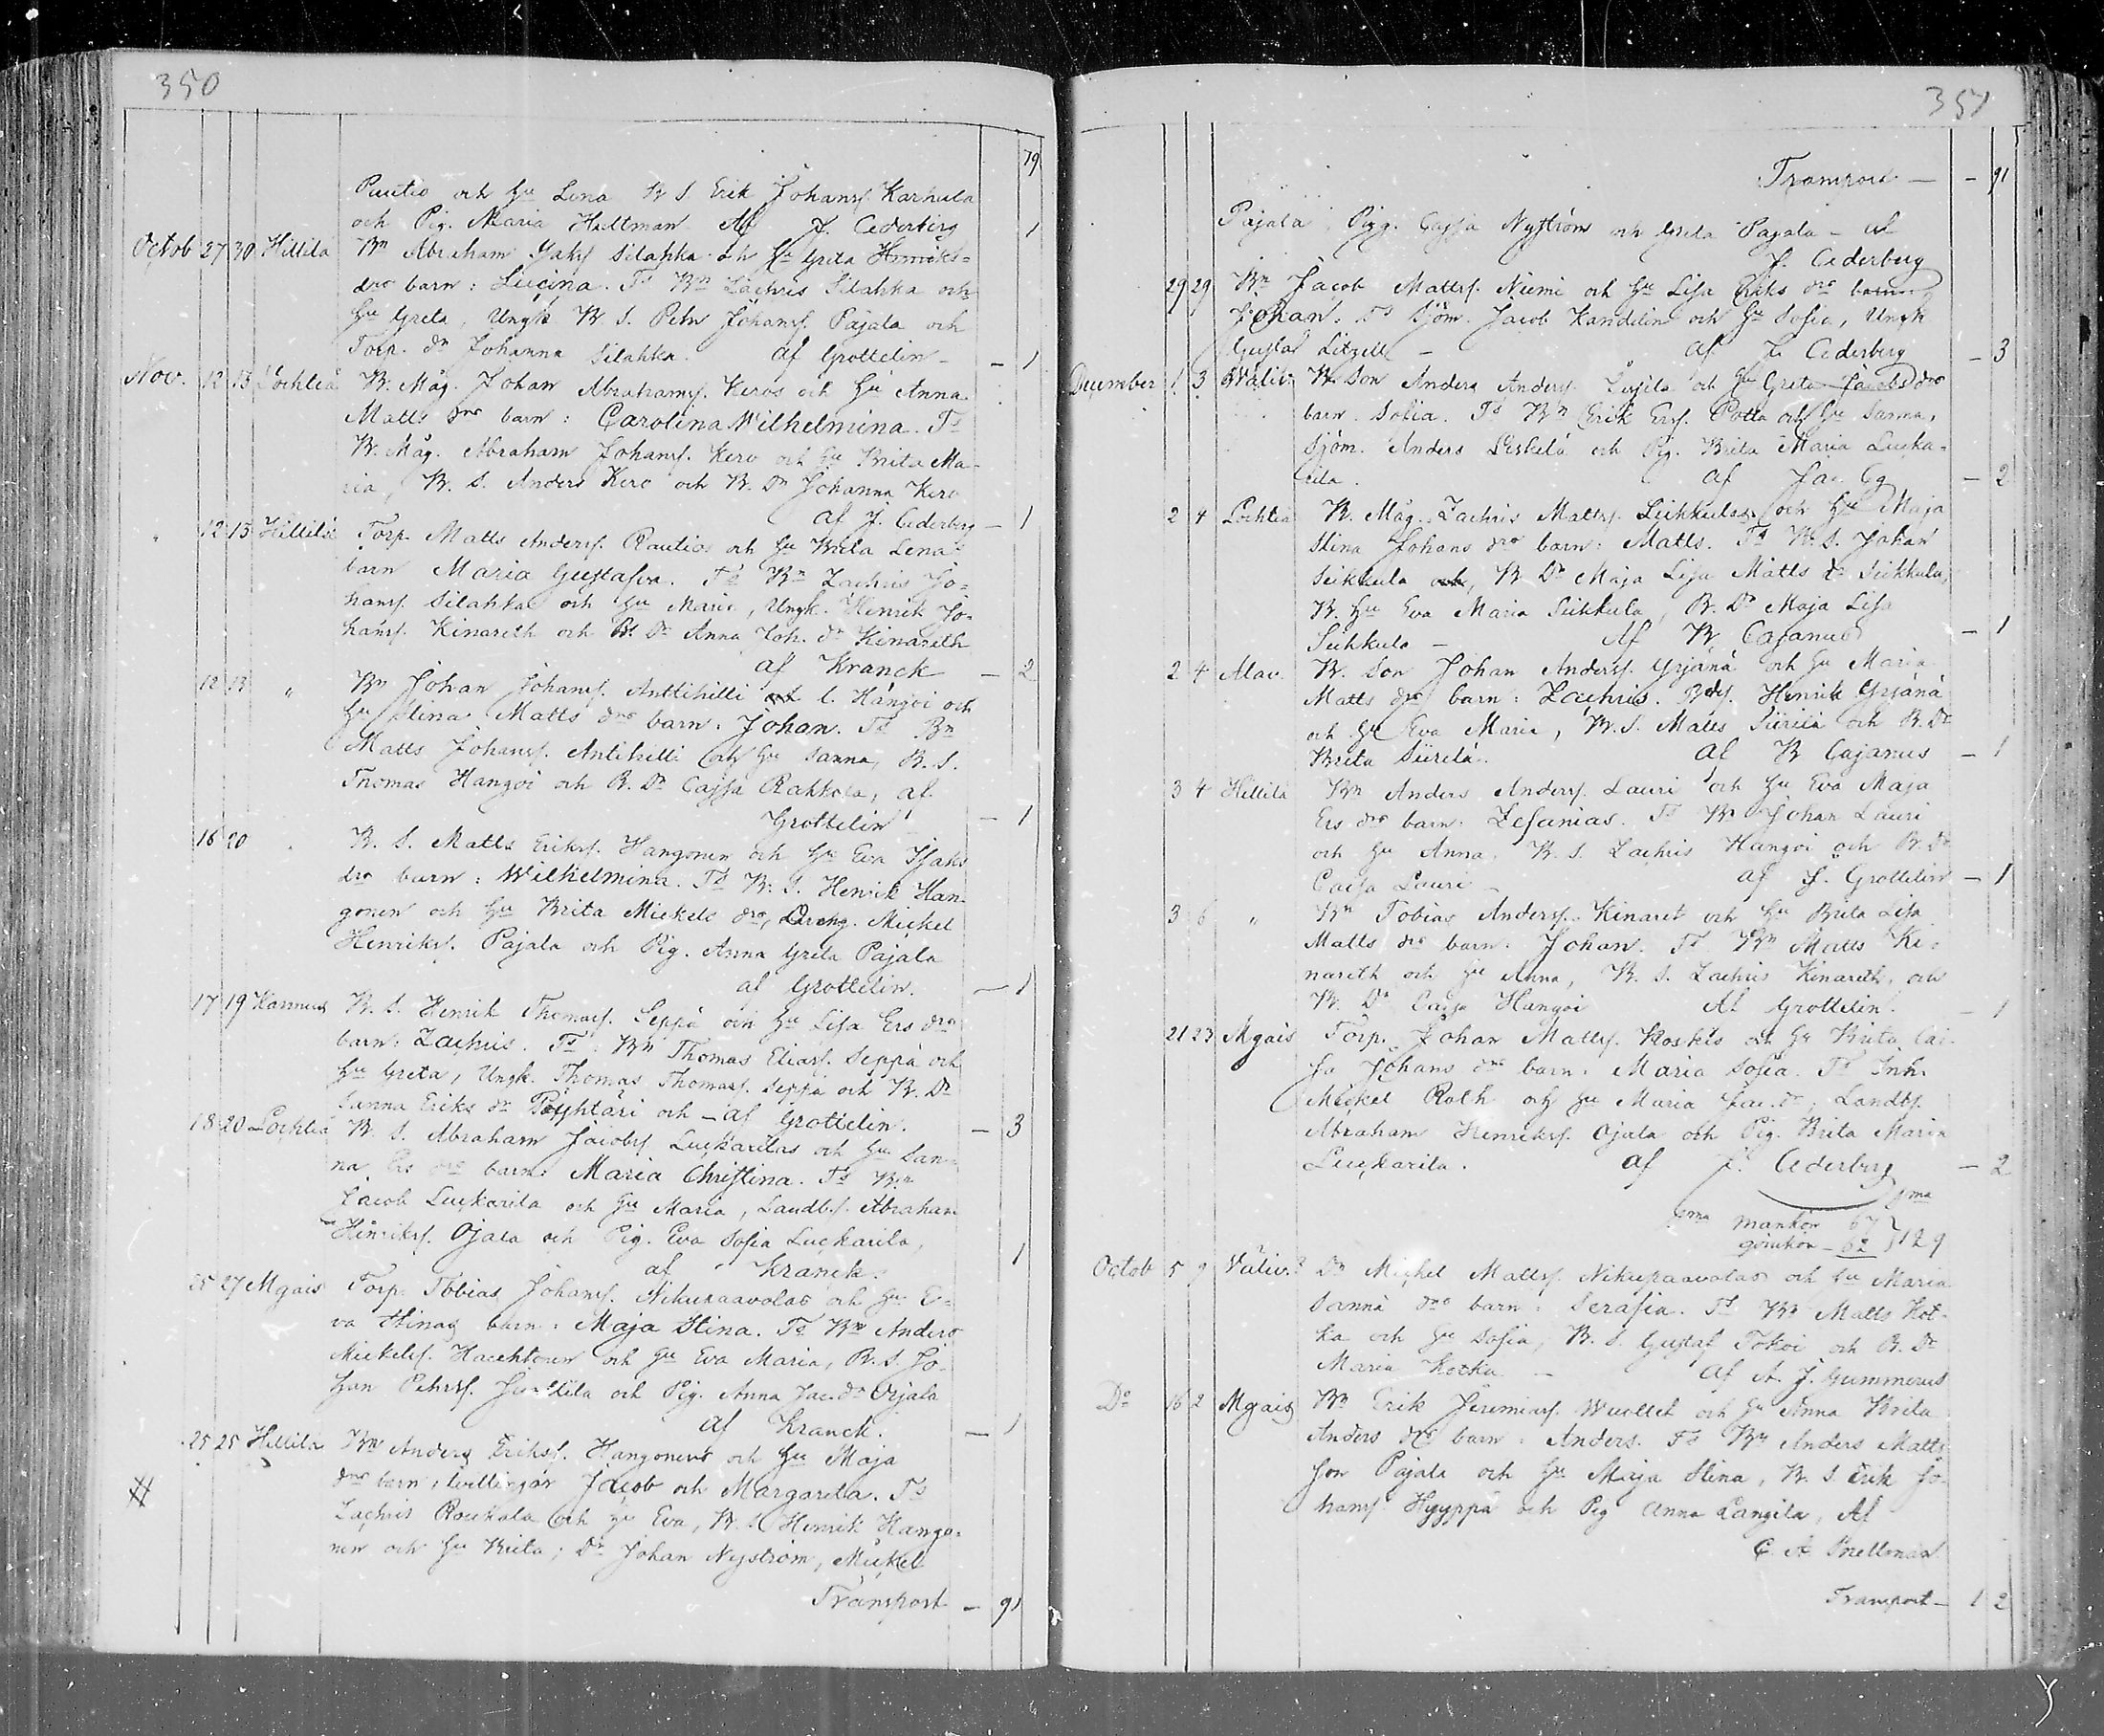 350
79
Puutio och hu Lena B. S. Erik Johansf. Karhula
och Pig. Maria Hultman Af J. Cederberg 1
Octob 27 30 Hillilä Bn Abraham Jakf Silahka och hu Greta Henriks=
dro barn: Lucina. Fd Bn Zachris Silahka och
hu Greta, Ungk B. S. Petr Johansf. Pajala och
Torp. dr Johanna Silahka. af Grottelin - - 1
Nov. 12 13 Lochteå B. Måg. Johan Abrahamsf. Keros och hu Anna
Matts dro barn: Carolina Wilhelmina. Fd
B. Måg. Abraham Johansf. Kero och hu Brita Ma-
ria, B. S. Anders Kero och B. Dr Johanna Kero
af J. Cederberg - 1
" 12 13 Hillilä Torp. Matts Andersf. Rautios och hu Brita Lena
barn Maria Gustafva. Fd Bn Zachris Jo-
hansf. Silahka och hu Maria, Ungk. Henrik Jo-
hansf. Kinareth och B. Dr Anna Joh. dr Kinareth
af Kranck - 2
12 13 " Bn Johan Johansf. Anttihilli l. Hangoi och
hu Stina Matts dro barn: Johan. Fd Bn
Matts Johansf. Antihilli och hu Sanna, B. S.
Thomas Hangoi och B. Dr Cajsa Rahkola, af
Grottelin - 1
16 20 B. S. Matts Eriksf. Hangonen och hu Eva Isaks
dro barn: Wilhelmina. Fd B. S. Henrik Han-
gonen och hu Brita Mickels dro, Dreng. Mickel
Henriksf. Pajala och Pig. Anna Greta Pajala
af Grottelin. - 1
17 19 Kannus B. S. Henrik Thomasf. Seppä och hu Lisa Ers dro
barn: Zachris. Fd Bn Thomas Eliasf. Seppä och
hu Greta, Ungk. Thomas Thomasf. Seppä och B. Dr
Sanna Eriks dr Pöyhtäri och - af Grottelin. - 3
18 20 Lochteå B. S. Abraham Jacobsf Luckarilas och hu San-
na Ers dro barn: Maria Christina. Fd Bn
Jacob Luckarila och hu Maria, Landbf. Abraham
Hinriksf. Ojala och Pig. Eva Sofia Luckarila,
af Kranck. 1
25 27 Mgais Torp. Tobias Johansf. Nikupaavolas och hu E-
va Stinas barn: Maja Stina. Fd Bn Anders
Mickelsf. och hu Eva Maria, B. S. Jo-
han Pehrsf. och Pig. Anna Jac. dr Orjala
af Kranck. - 1
25 25 Hillilä Bn Anders Eriksf. Hangonens och hu Maja
dro barn, tvillingar Jacob och Margareta. Fd
Zachris Roukala och hu Eva, B. S. Henrik Hango-
nen och hu Brita; Dr Johan Nyström, Mickel
Transport - 91
351
Transport - - 91
Pajala, Pigg. Cajsa Nyström och Greta Pajala - af
J. Cederberg
29 29 Bn Jacob Mattsf. Niemi och hu Lisa Eriks dro barn
Johan. Fd Sjöm. Jacob Kandelin och hu Sofia, Ungk
Gustaf Litzelle - af J. Cederberg - 3
December 1 3 Wäliv: B. Son Anders Andersf. och hu Greta Jacobs dro
barn. Sofia. Fd Bn Erik Ersf. Potta och hu Sanna,
Sjöm. Anders Leskelä och Pig. Brita Maria Lucka-
rila. af Jac. Cg - 2
2 4 Lochteå B. Måg. Zachris Mattsf. Siikkulas och hu Maja
Stina Johans dro barn: Matts. Fd B. S. Johan
Siikkula och, B Dr Maja Lisa Matts dr Siikkula,
B. hu Eva Maria Siikkula, B. Dr Maja Lisa
Siikkula - Af B Cajanus - 1
2 4 Alav. B. Son Johan Andersf. Yrjänä och hu Maria
Matts dro barn: Zachris. Bdsf. Henrik Yrjänä
och hu Eva Maria, B. S. Matts Siirilä och B. Dr
Brita Siirilä. af B Cajanus - 1
3 4 Hillilä Bn Anders Andersf. Lauri och hu Eva Maja
Ers dro barn. Zefanias. Fd Bn Johan Lauri
och hu Anna, B. S. Zachris Hangoi och B. Dr
Caisa Lauri - af J. Grottelin - 1
3 6 " Bn Tobias Andersf. Kinaret och hu Brita Lisa
Matts dro barn. Johan. Fd Bn Matts Ki-
nareth och hu Anna, B. S. Zachris Kinareth, och
B. Dr Caisa Hangoi Af Grottelin. - 1
21 23 Mgais Torp. Johan Mattsf. Koskis och hu Brita Cai-
sa Johans dro barn. Maria Sofia. Fd Inh.
Mickel Roth och hu Maria Jac. dr, Landbf.
Abraham Henriksf. Ojala och Pig. Brita Maria
Luckarila. af J. Cederberg - 2
Sma mankön 67 } Sma
qvinkön - 62 } 129
Octob 5 9 Väliv: Dr Michel Mattsf. Nikupaavolas och hu Maria
Sanna dro barn: Serafia. Fd Bn Matts Kot-
ka och hu Sofia, B. S. Gustaf Tokoi och B. Dr
Maria Kotka - Af A. J. Gummerus
Do 16 2 Mgais Bn Erik Jeremiasf. Wuollet och hu Anna Brita
Anders dro barn: Anders. Fd Bn Anders Matts
son Pajala och hu Maja Stina, B. S. Erik Jo-
hansf. Hyyppä och Pig Anna Längila, Af
C. A. Snellman
Transport - 1 2